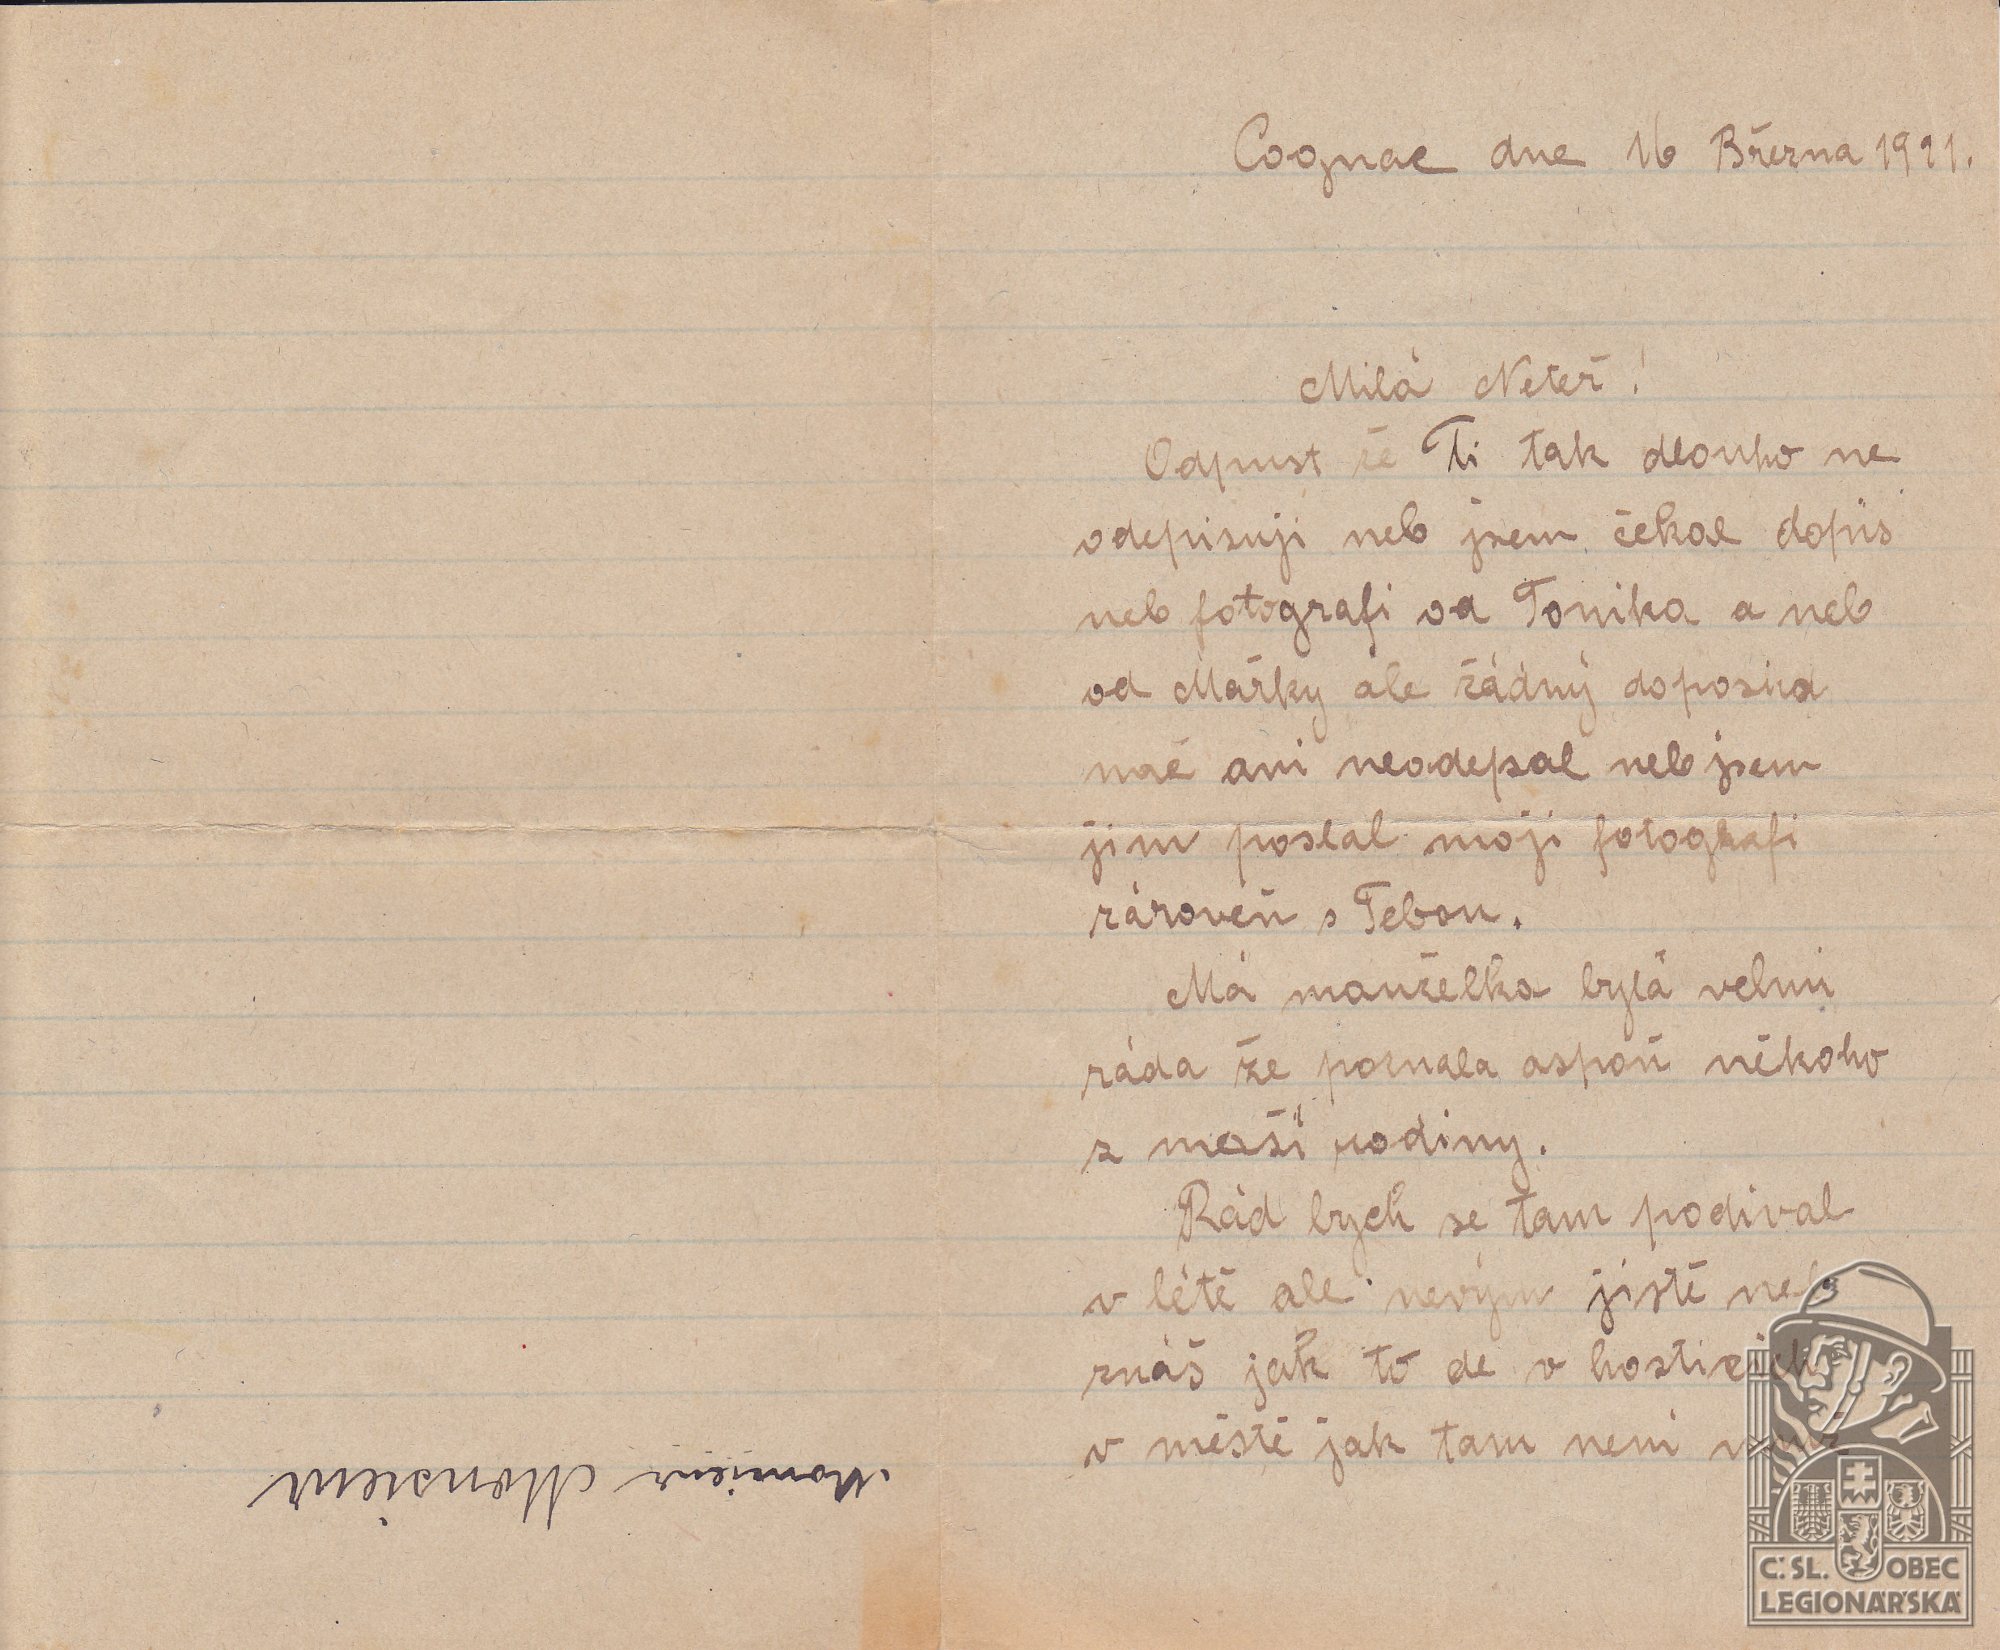 Cognac dne 16 Března 1921.
Milá Neteř!
Odpust že Ti tak dlouho ne
odepisuji neb jsem čekal dopis
neb fotografi od Tonika a neb
od Mařky ale žádný doposud
ani neodepsal neb jsem
jim poslal moji fotografi
zároveň s Tebou.
Má manželka bylá velmi
ráda že poznala aspoň někoho
z naší rodiny.
Rád bych se tam podival
v létě ale nevým jistě neb
znáš jak to de v hosticich
v městě jak tam neni
Monsieur Monsieur
Č.SL. OBEC
LEGIONÁŘSKÁ